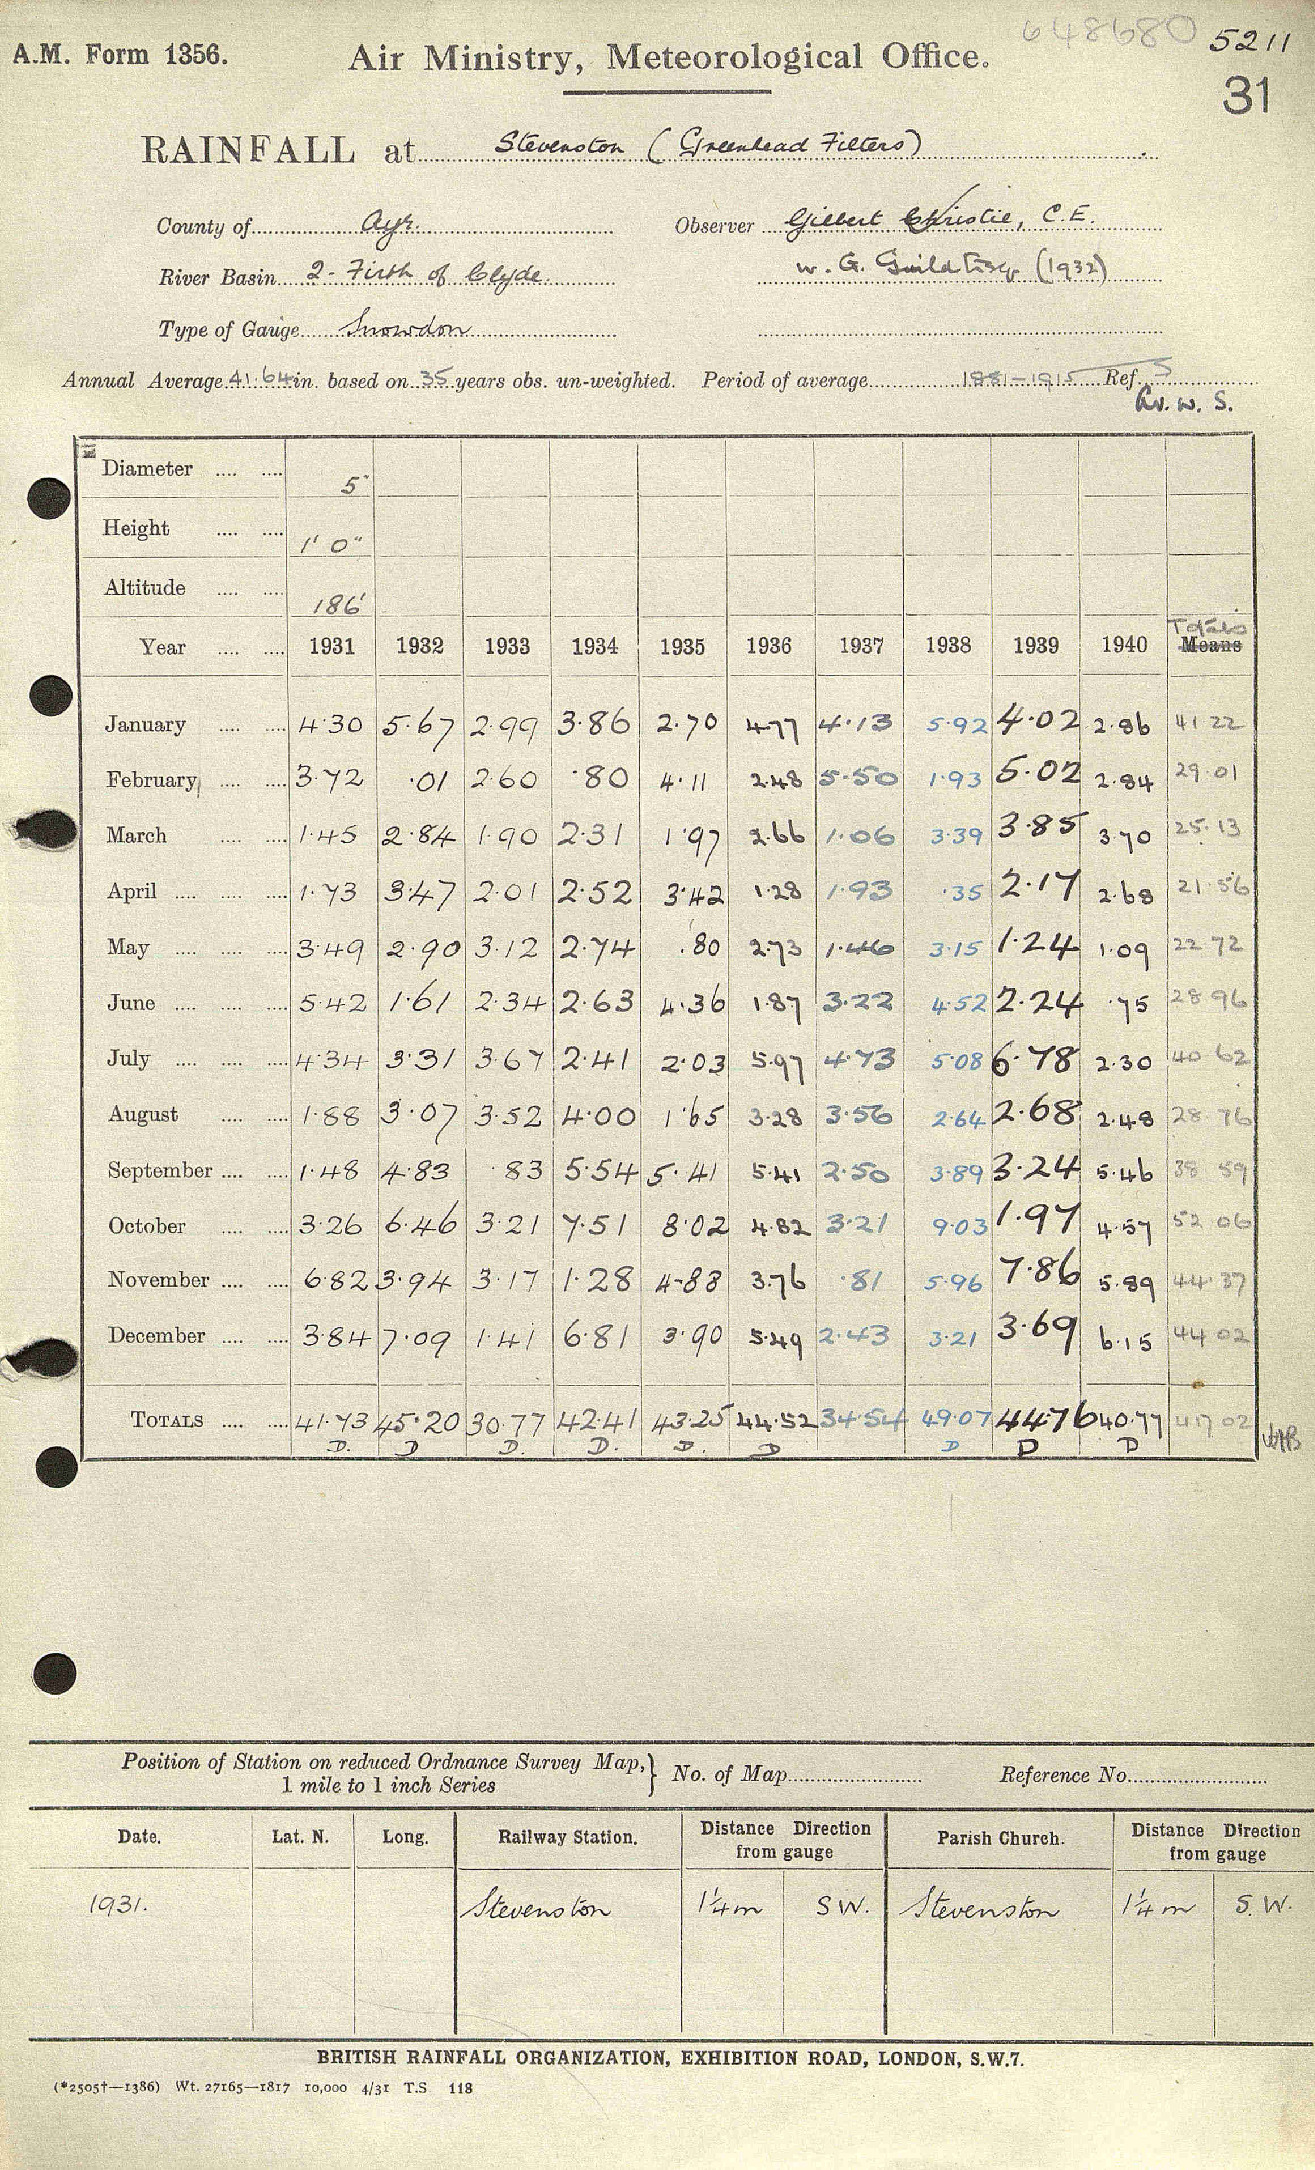 648680 5211
A.M. Form 1356. Air Ministry, Meteorological Office.
31
RAINFALL at Stevenston (Greenhead Filters)
County of Ayr. Observer Gilbert Christie, C.E.
River Basin 2- Firth of Clyde. W. G. Guild Esq. (1932)
Type of Gauge Snowdon
Annual Average 41.64 in. based on 35 years obs. un-weighted. Period of average 1881-1915 Ref. S
Av. W. S.
Diameter 5"
Height 1' 0"
Altitude 186'
Totals
Year 1931 1932 1933 1934 1935 1936 1937 1938 1939 1940 Means
January 4.30 5.67 2.99 3.86 2.70 4.77 4.13 5.92 4.02 2.86 41.22
February 3.72 .01 2.60 .80 4.11 2.48 5.50 1.93 5.02 2.84 29.01
March 1.45 2.84 1.90 2.31 1.97 2.66 1.06 3.39 3.85 3.70 25.13
April 1.73 3.47 2.01 2.52 3.42 1.28 1.93 .35 2.17 2.68 21.56
May 3.49 2.90 3.12 2.74 .80 2.73 1.46 3.15 1.24 1.09 22 72
June 5.42 1.61 2.34 2.63 4.36 1.87 3.22 4.52 2.24 .75 28 96
July 4.34 3.31 3.67 2.41 2.03 5.97 4.73 5.08 6.78 2.30 40 62
August 1.88 3.07 3.52 4.00 1.65 3.28 3.56 2.64 2.68 2.48 28 76
September 1.48 4.83 .83 5.54 5.41 5.41 2.50 3.89 3.24 5.46 38 59
October 3.26 6.46 3.21 7.51 8.02 4.82 3.21 9.03 1.97 4.57 52 06
November 6.82 3.94 3.17 1.28 4.88 3.76 .81 5.96 7.86 5.89 44.37
December 3.84 7.09 1.41 6.81 3.90 5.49 2.43 3.21 3.69 6.15 44 02
TOTALS 41.73 45.20 30.77 42.41 43.25 44.52 34.54 49.07 44.76 40.77 417 02
D. D D. D. D. D D D D
Position of Station on reduced Ordnance Survey Map, 1 mile to 1 inch Series } No. of Map Reference No.
Date. Lat. N. Long. Railway Station. Distance Direction from gauge Parish Church. Distance Direction from gauge
1931. Stevenston 1¼ m S W. Stevenston 1¼ m S. W.
BRITISH RAINFALL ORGANIZATION, EXHIBITION ROAD, LONDON, S.W.7.
(*2505†—1386) Wt. 27165—1817 10,000 4/31 T.S 118